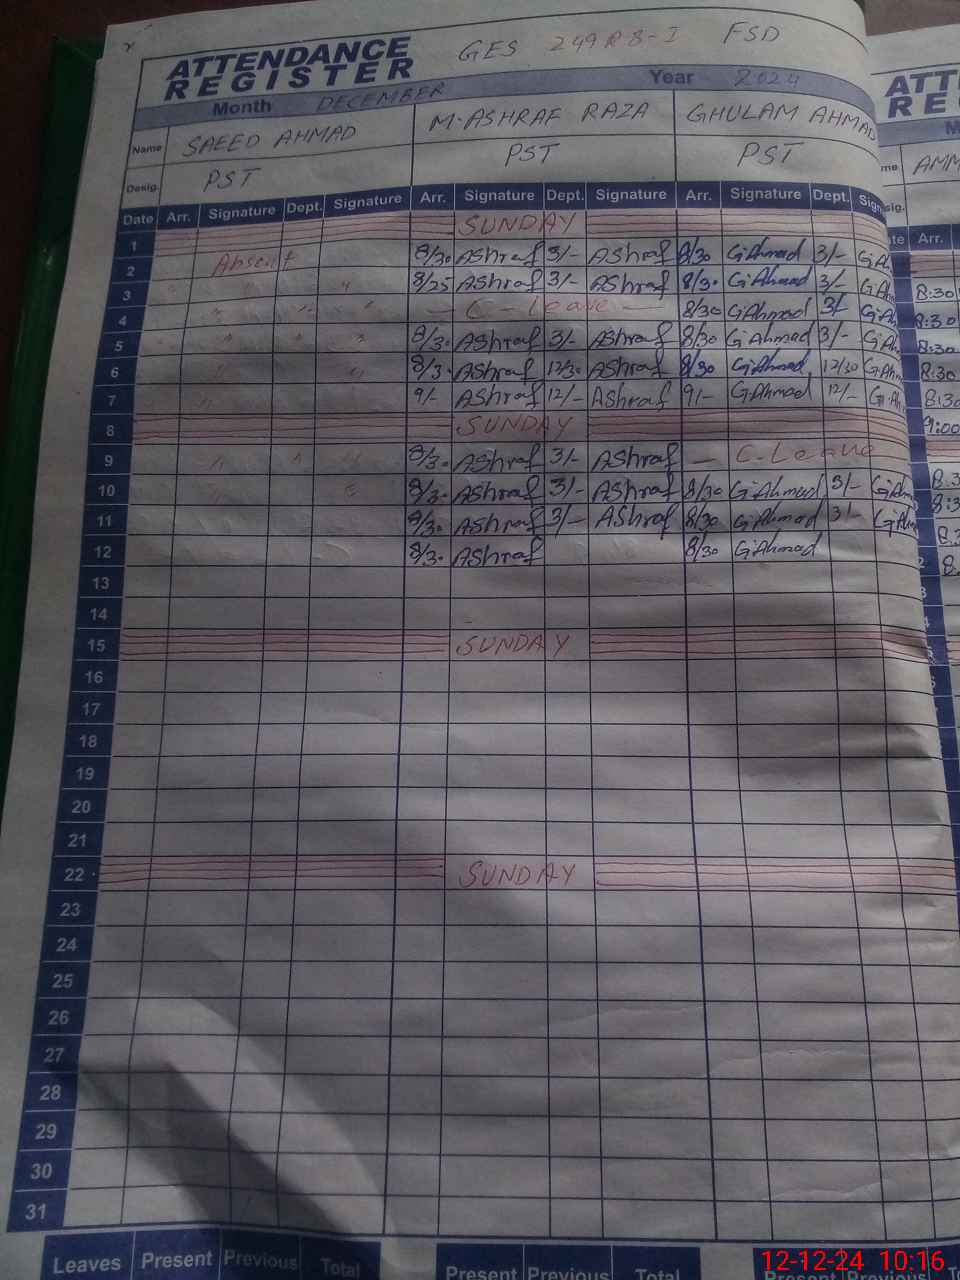 ATTENDANCE REGISTER GES 249 RB-I FSD
Month DECEMBER Year 2024
Name SAEED AHMAD M. ASHRAF RAZA GHULAM AHMAD
Desig. PST PST PST
Date Arr. Signature Dept. Signature Arr. Signature Dept. Signature Arr. Signature Dept.
1 SUNDAY
2 Absent 8/30 AShraf 3/- AShraf 8/30 G.Ahmad 3/-
3 " " 8/25 AShraf 3/- AShraf 8/30 G.Ahmad 3/-
4 " " " — C - Leave — 8/30 G.Ahmad 3/-
5 " " " " 8/30 AShraf 3/- AShraf 8/30 G.Ahmad 3/-
6 " " 8/30 AShraf 12/30 AShraf 8/30 G.Ahmad 12/30
7 9/- AShraf 12/- AShraf 9/- G.Ahmad 12/-
8 SUNDAY
9 " " " 8/30 AShraf 3/- AShraf — C. Leave
10 8/30 AShraf 3/- AShraf 8/30 G.Ahmad 3/-
11 8/30 AShraf 3/- AShraf 8/30 G.Ahmad 3/-
12 8/30 AShraf 8/30 G.Ahmad
13
14
15 SUNDAY
16
17
18
19
20
21
22 SUNDAY
23
24
25
26
27
28
29
30
31
Leaves Present Previous Total Present Previous Total Present Previous
12-12-24 10:16
AMM
Arr.
8:30
8:30
8:30
8:30
8:30
9:00